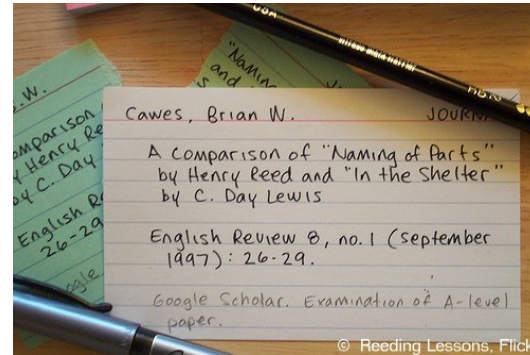 Cawes, Brian W. JOURN
A Comparison of "Naming of Parts"
by Henry Reed and "In the Shelter"
by C. Day Lewis
English Review 8, no. 1 (September
1997): 26-29.
Google Scholar. Examination of A-level
paper.
.W.
omparison
y Henry Re
by C. Day
English R
26-29
oogle
"Namin
and
USA
HB
© Reeding Lessons, Flick